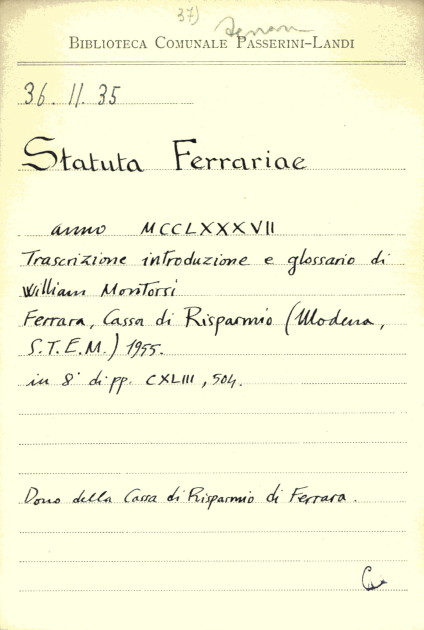 37)
BIBLIOTECA COMUNALE PASSERINI-LANDI
36. 11. 35
Statuta Ferrariae
anno MCCLXXXVII
Trascrizione introduzione e glossario di
William Montorsi
Ferrara, Cassa di Risparmio (Modena,
S.T.E.M.) 1955.
in 8° di pp. CXLIII, 504.
Dono della Cassa di Risparmio di Ferrara.